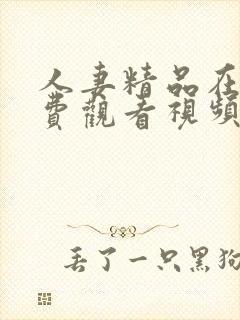 人妻精品在
費觀看視頻
丢了一只黑狗